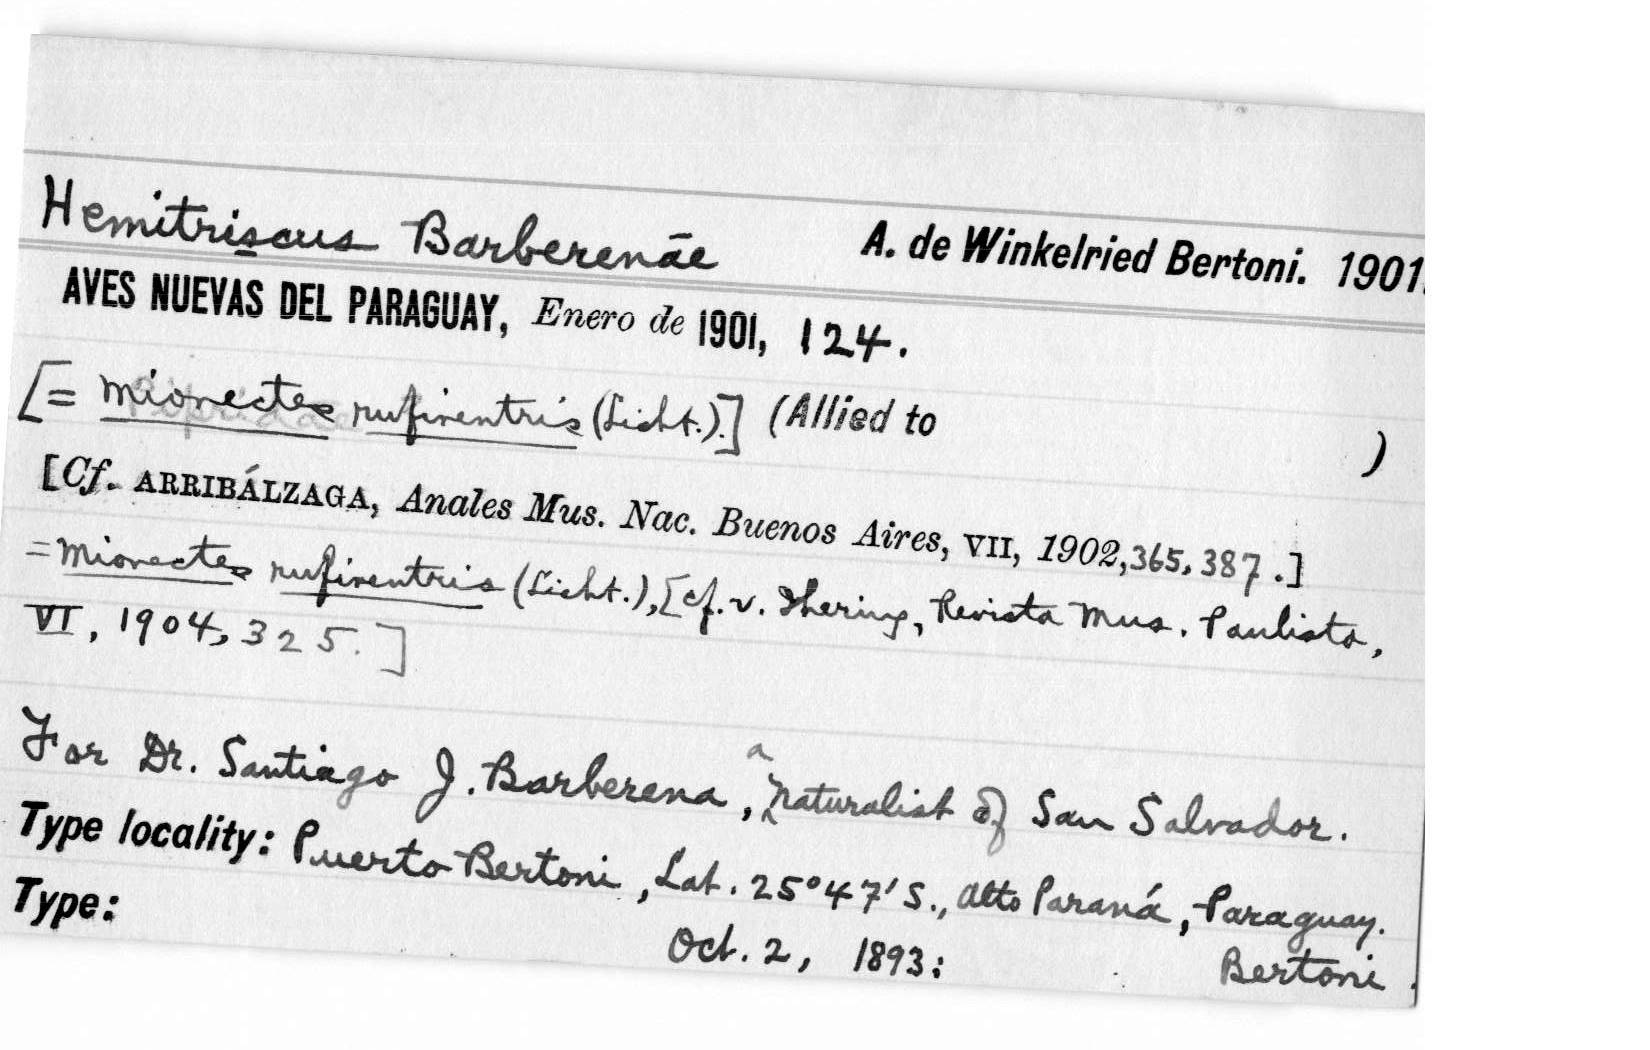 Hemitriscus Barberenae A. de Winkelried Bertoni. 1901.
AVES NUEVAS DEL PARAGUAY, Enero de 1901, 124.
[= Mionectes rufiventris (Licht.).] (Allied to )
[Cf. ARRIBÁLZAGA, Anales Mus. Nac. Buenos Aires, VII, 1902, 365, 387.]
= Mionectes rufiventris (Licht.), [cf. v. Ihering, Revista Mus. Paulista,
VI, 1904, 325.]
For Dr. Santiago J. Barberena, a naturalist of San Salvador.
Type locality: Puerto Bertoni, Lat. 25°47'S., Alto Paraná, Paraguay.
Type: Oct. 2, 1893: Bertoni.